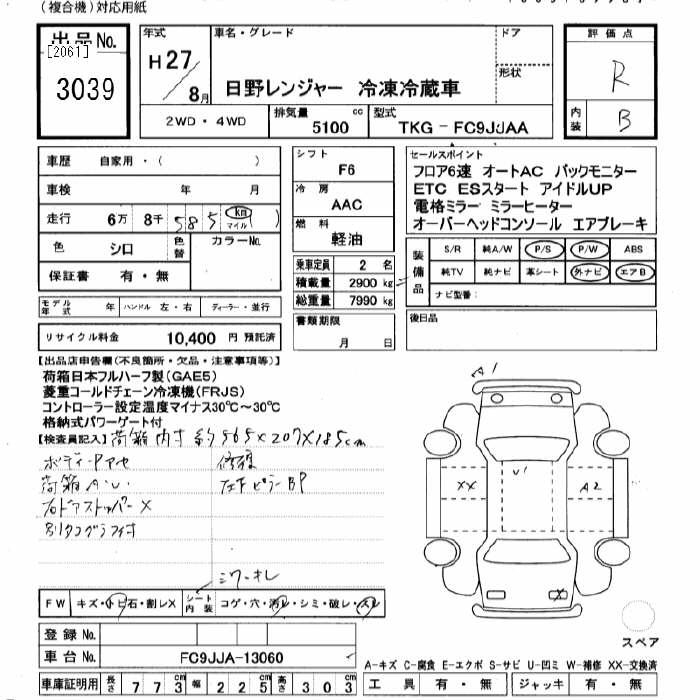 (複合機)対応用紙
出品No. 年式 車名・グレード ドア 評価点
[2061] 3039 H27/8月 日野レンジャー 冷凍冷蔵車 形状 R
2WD・4WD 排気量 5100 cc 型式 TKG-FC9JJAA 内装 B
車歴 自家用・( ) シフト F6 セールスポイント
車検 年 月 冷房 AAC フロア6速 オートAC バックモニター
走行 6万 8千 585 km マイル ) 燃料 軽油 ETC ESスタート アイドルUP
電格ミラー ミラーヒーター
オーバーヘッドコンソール エアブレーキ
色 シロ 色替 カラーNo. 乗車定員 2 名 装備品 S/R 純A/W P/S P/W ABS
保証書 有・無 積載量 2900 kg 純TV 純ナビ 革シート 外ナビ エアB
総重量 7990 kg ナビ型番:
モデル年式 年 ハンドル 左・右 ディーラー・並行 書類期限 後日品
リサイクル料金 10,400 円 預託済 月 日
【出品店申告欄(不良箇所・欠品・注意事項等)】
荷箱日本フルハーフ製(GAE5)
菱重コールドチェーン冷凍機(FRJS)
コントローラー設定温度マイナス30℃~30℃
格納式パワーゲート付
【検査員記入】荷箱内寸 約565×207×185cm
ボディーPアセ 修復
荷箱Aい 左FピラーBP
右ドアストッパーX
別タコグラフ付
A1
XX V1 A2
X
シワ・キレ
FW キズ・トビ石・割レX シート内装 コゲ・穴・汚レ・シミ・破レ・スレ
スペア
登録No.
車台No. FC9JJA-13060
A-キズ C-腐食 E-エクボ S-サビ U-凹ミ W-補修 XX-交換済
車庫証明用 長さ 773cm 幅 225cm 高さ 303cm 工具 有・無 ジャッキ 有・無